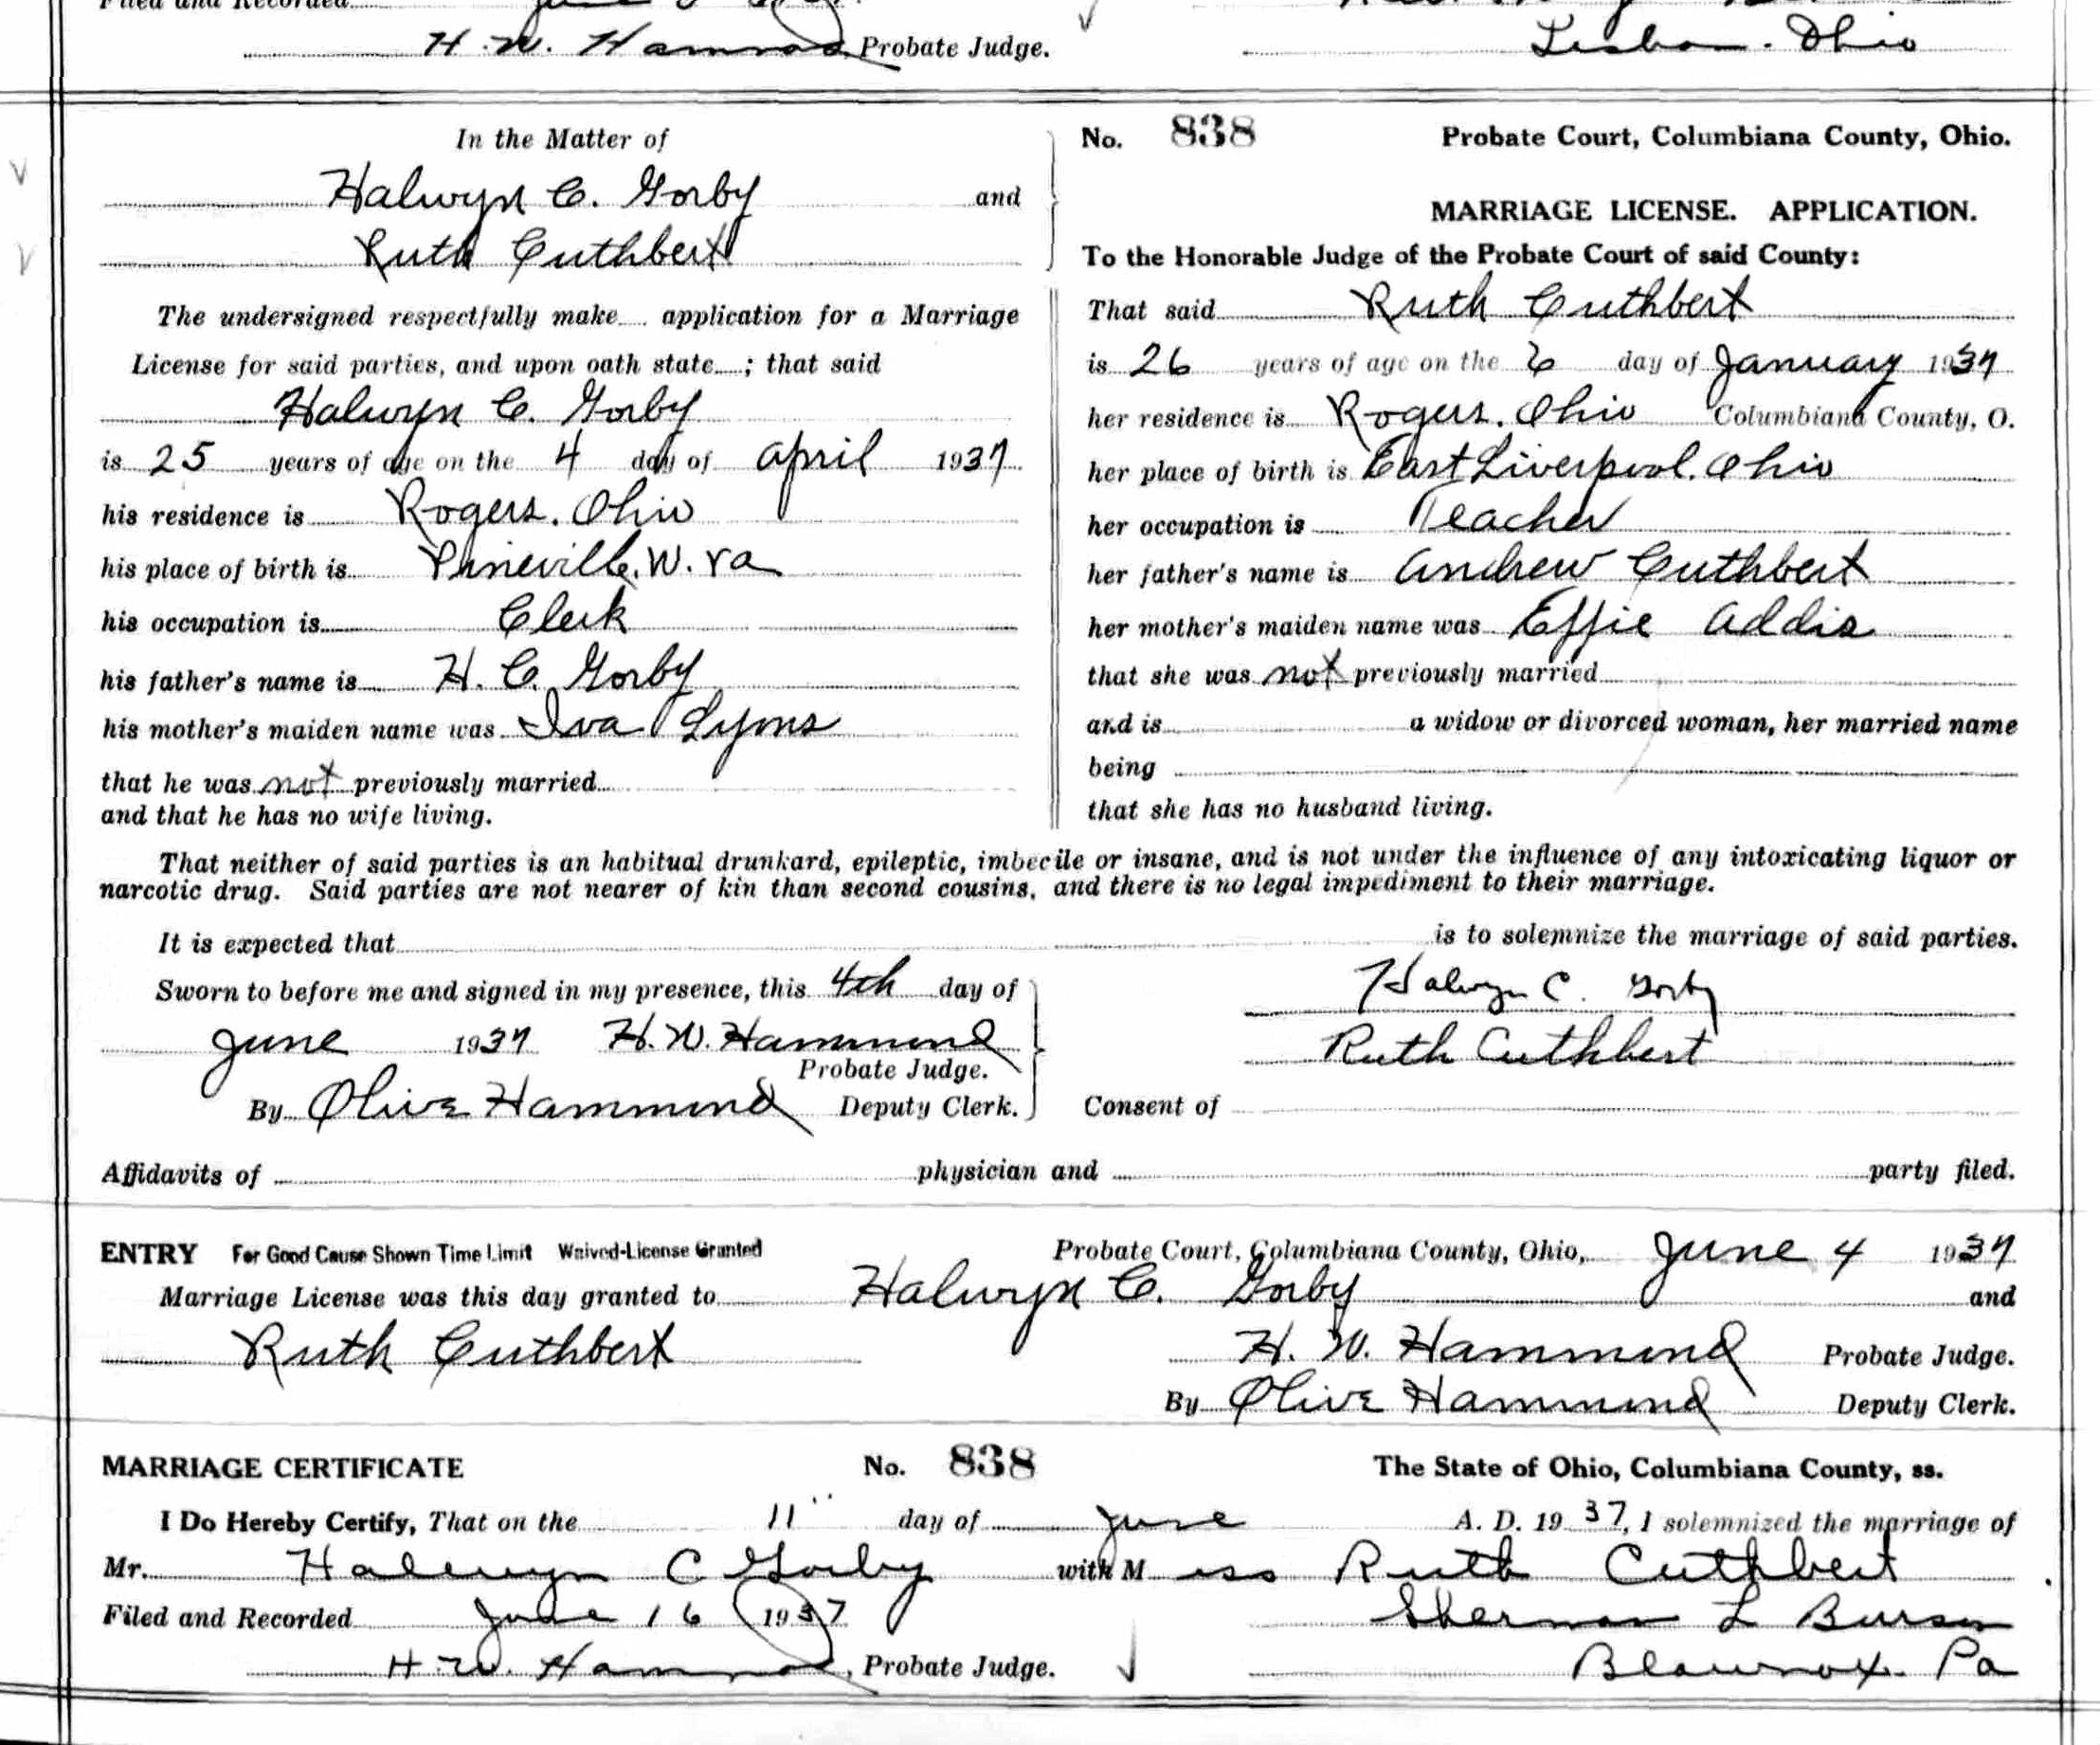 Filed and Recorded
H. W. Hammond Probate Judge.
Lisbon. Ohio
In the Matter of
Halwyn C. Gorby and
Ruth Cuthbert
The undersigned respectfully make application for a Marriage
License for said parties, and upon oath state ; that said
Halwyn C. Gorby
is 25 years of age on the 4 day of April 1937
his residence is Rogers. Ohio
his place of birth is Pineville, W. Va
his occupation is Clerk
his father's name is H. C. Gorby
his mother's maiden name was Iva Lyons
that he was not previously married
and that he has no wife living.
No. 838 Probate Court, Columbiana County, Ohio.
MARRIAGE LICENSE. APPLICATION.
To the Honorable Judge of the Probate Court of said County:
That said Ruth Cuthbert
is 26 years of age on the 6 day of January 1937
her residence is Rogers. Ohio Columbiana County, O.
her place of birth is East Liverpool. Ohio
her occupation is Teacher
her father's name is Andrew Cuthbert
her mother's maiden name was Effie Addis
that she was not previously married
and is a widow or divorced woman, her married name
being
that she has no husband living.
That neither of said parties is an habitual drunkard, epileptic, imbecile or insane, and is not under the influence of any intoxicating liquor or
narcotic drug. Said parties are not nearer of kin than second cousins, and there is no legal impediment to their marriage.
It is expected that is to solemnize the marriage of said parties.
Sworn to before me and signed in my presence, this 4th day of
June 1937 H. W. Hammond
Probate Judge.
By Olive Hammond Deputy Clerk.
Halwyn C. Gorby
Ruth Cuthbert
Consent of
Affidavits of physician and party filed.
ENTRY For Good Cause Shown Time Limit Waived-License Granted Probate Court, Columbiana County, Ohio, June 4 1937
Marriage License was this day granted to Halwyn C. Gorby and
Ruth Cuthbert H. W. Hammond Probate Judge.
By Olive Hammond Deputy Clerk.
MARRIAGE CERTIFICATE No. 838 The State of Ohio, Columbiana County, ss.
I Do Hereby Certify, That on the 11" day of June A. D. 19 37, I solemnized the marriage of
Mr. Halwyn C Gorby with M iss Ruth Cuthbert
Filed and Recorded June 16 1937 Sherman L Burson
H. W. Hammond, Probate Judge. Blawnox. Pa